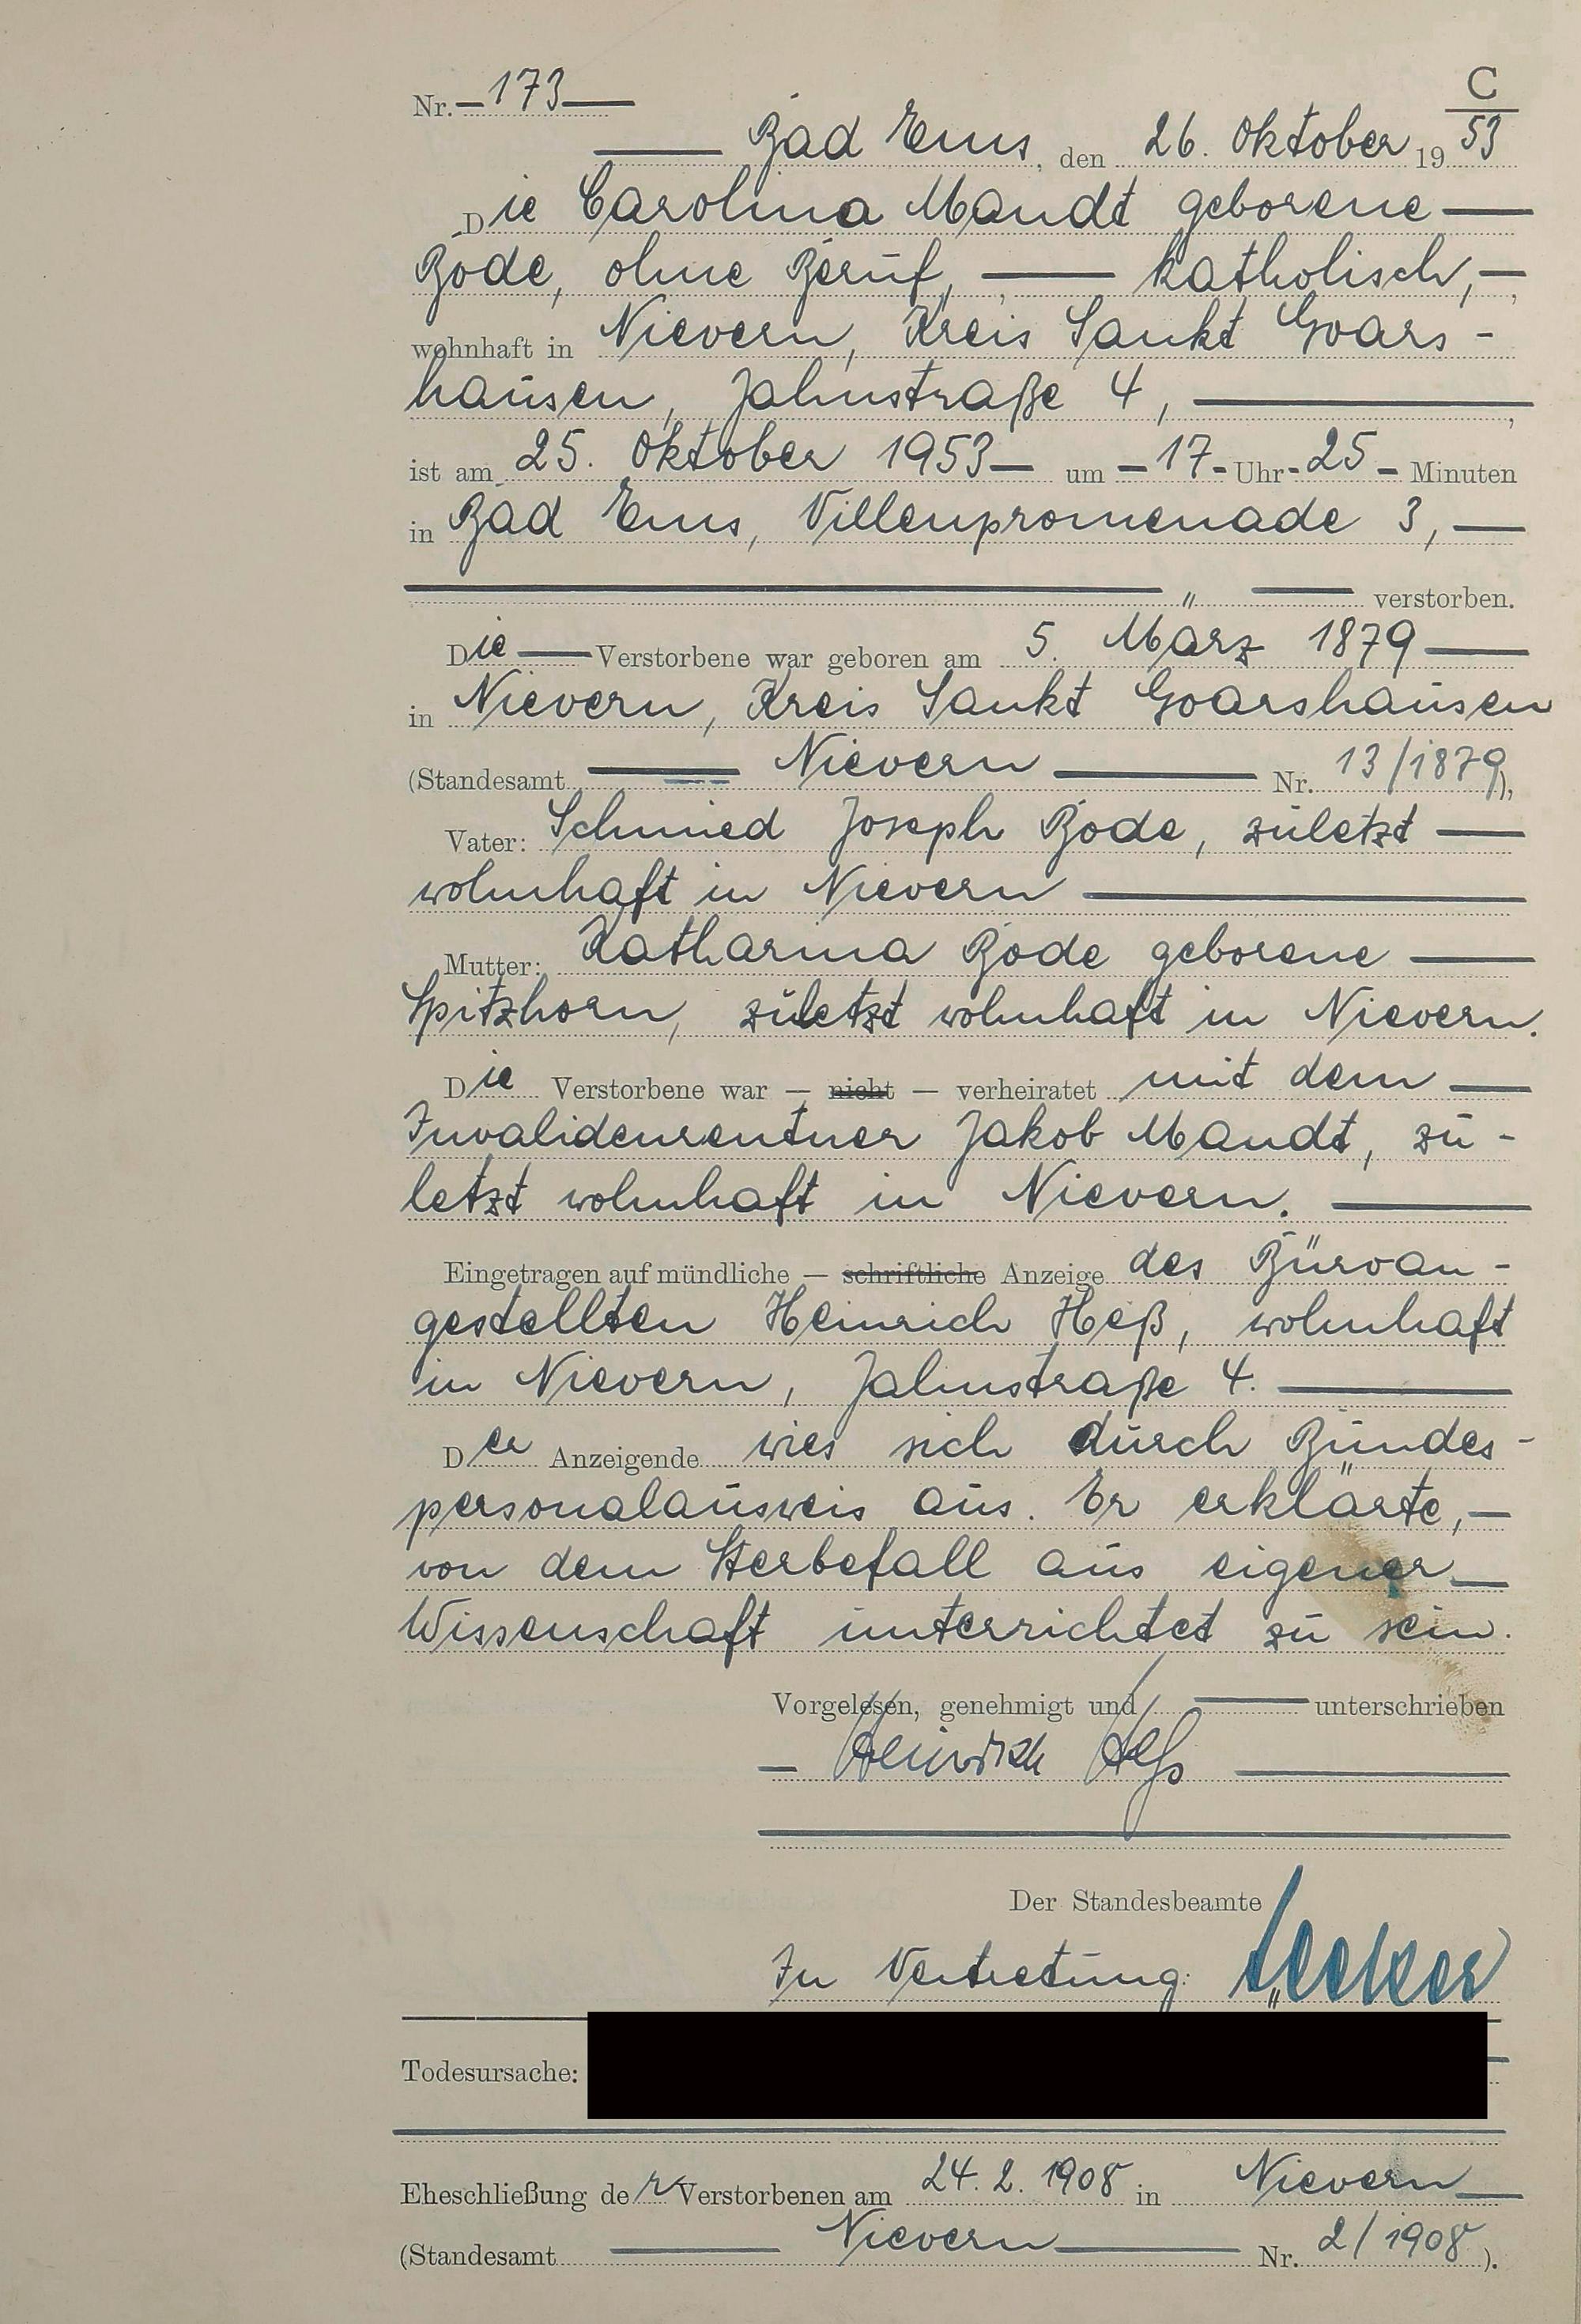 C
Nr. 173
Bad Ems, den 26. Oktober 1953
Die Carolina Mandt geborene
Bode, ohne Beruf, katholisch,
wohnhaft in Nievern, Kreis Sankt Goars-
hausen, Jahnstraße 4,
ist am 25. Oktober 1953 um 17 Uhr 25 Minuten
in Bad Ems, Villenpromenade 3,
verstorben.
Die Verstorbene war geboren am 5. März 1879
in Nievern, Kreis Sankt Goarshausen
(Standesamt Nievern Nr. 13/1879),
Vater: Schmied Joseph Bode, zuletzt
wohnhaft in Nievern
Mutter: Katharina Bode geborene
Spitzhorn, zuletzt wohnhaft in Nievern.
Die Verstorbene war — nicht — verheiratet mit dem
Invalidenrentner Jakob Mandt, zu-
letzt wohnhaft in Nievern.
Eingetragen auf mündliche — schriftliche Anzeige des Büroan-
gestellten Heinrich Heß, wohnhaft
in Nievern, Jahnstraße 4.
Der Anzeigende wies sich durch Bundes-
personalausweis aus. Er erklärte,
von dem Sterbefall aus eigener
Wissenschaft unterrichtet zu sein.
Vorgelesen, genehmigt und unterschrieben
Heinrich Heß
Der Standesbeamte
In Vertretung:
Todesursache:
Eheschließung der Verstorbenen am 24.2.1908 in Nievern
(Standesamt Nievern Nr. 2/1908).